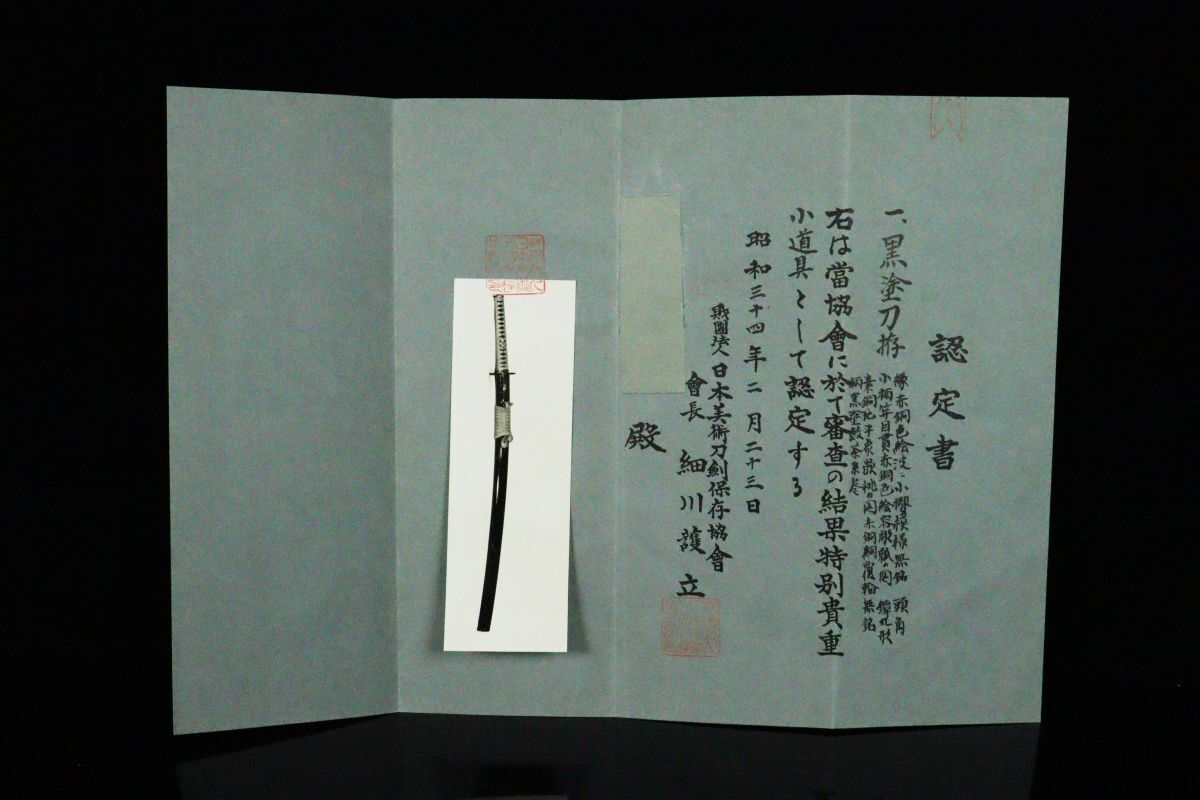 認定書
一、黒塗刀拵
縁赤銅色絵波ニ小模様無銘 頭角
小柄笄目貫赤銅色絵図 鐔丸形
素銅地平象嵌桃の図赤銅縄覆輪無銘
柄黒塗鮫茶糸巻
右は當協會に於て審査の結果特別貴重
小道具として認定する
昭和三十四年二月二十三日
財團法人日本美術刀劍保存協會
會長 細川護立
殿